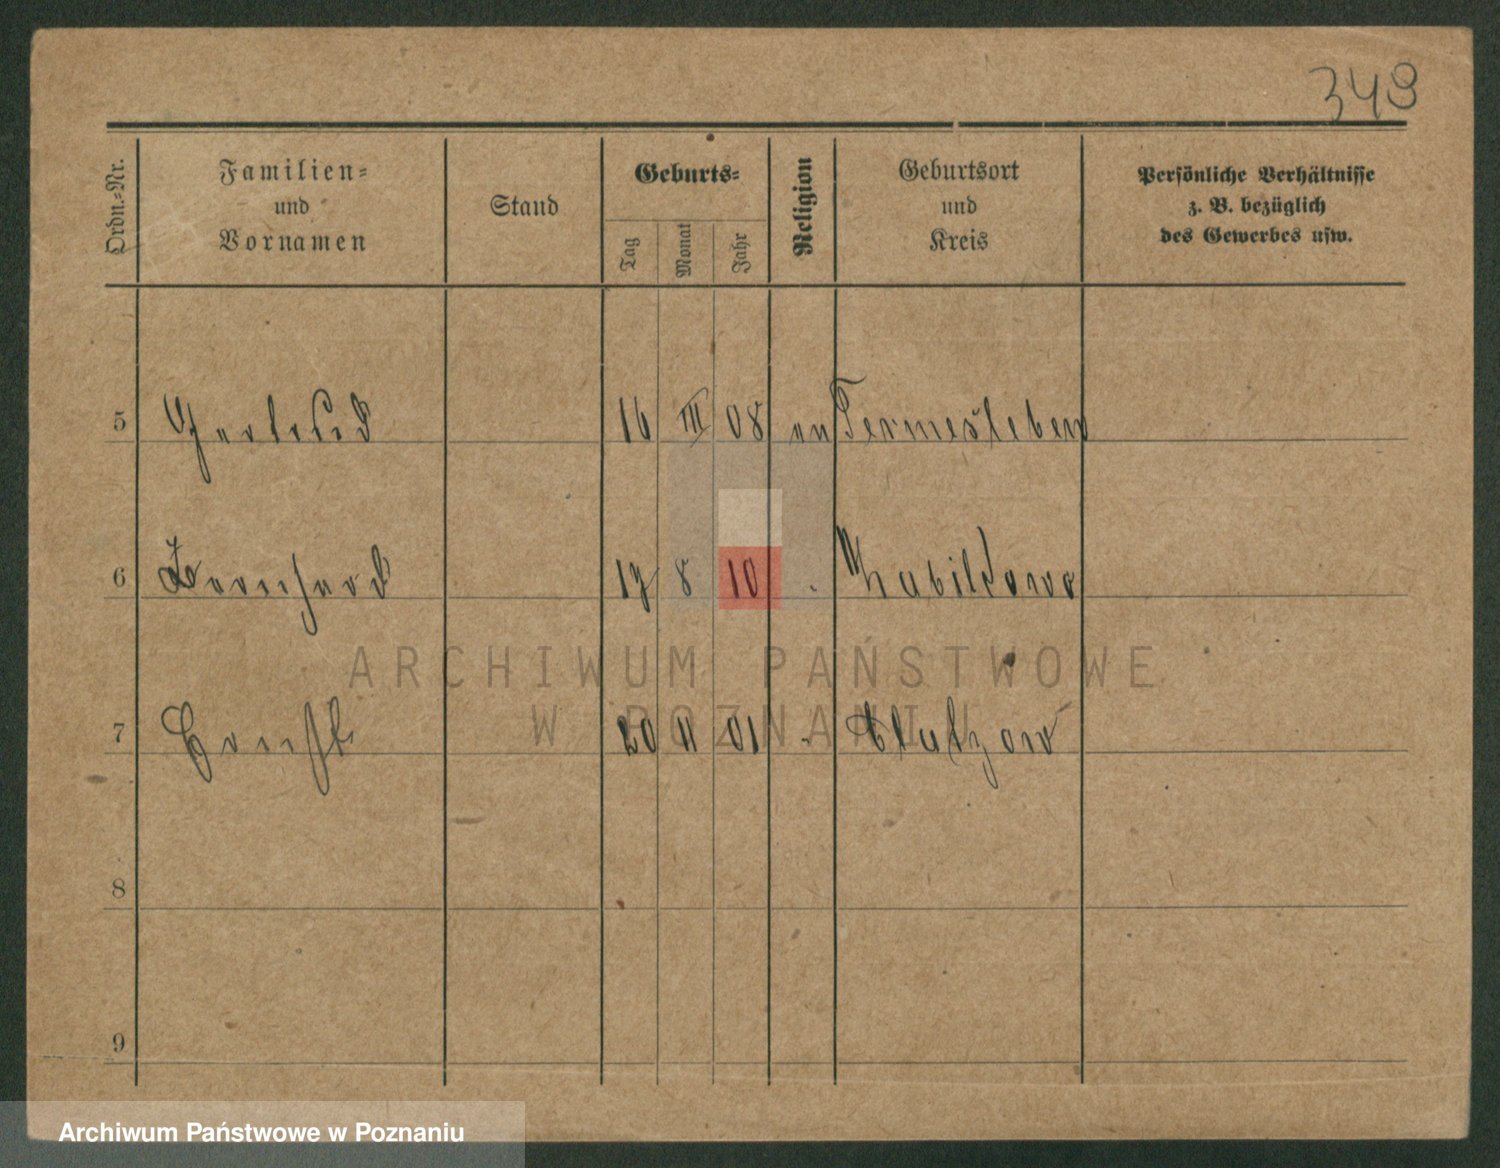 349
Ordn.-Nr.
Familien-
und
Vornamen
Stand
Geburts-
Tag
Monat
Jahr
Religion
Geburtsort
und
Kreis
Persönliche Verhältnisse
z. B. bezüglich
des Gewerbes usw.
5 Gertrud 16 III 08 Termesleben
6 Bernhard 17 8 10
7 20 11 01
8
9
ARCHIWUM PAŃSTWOWE
W POZNANIU
Archiwum Państwowe w Poznaniu